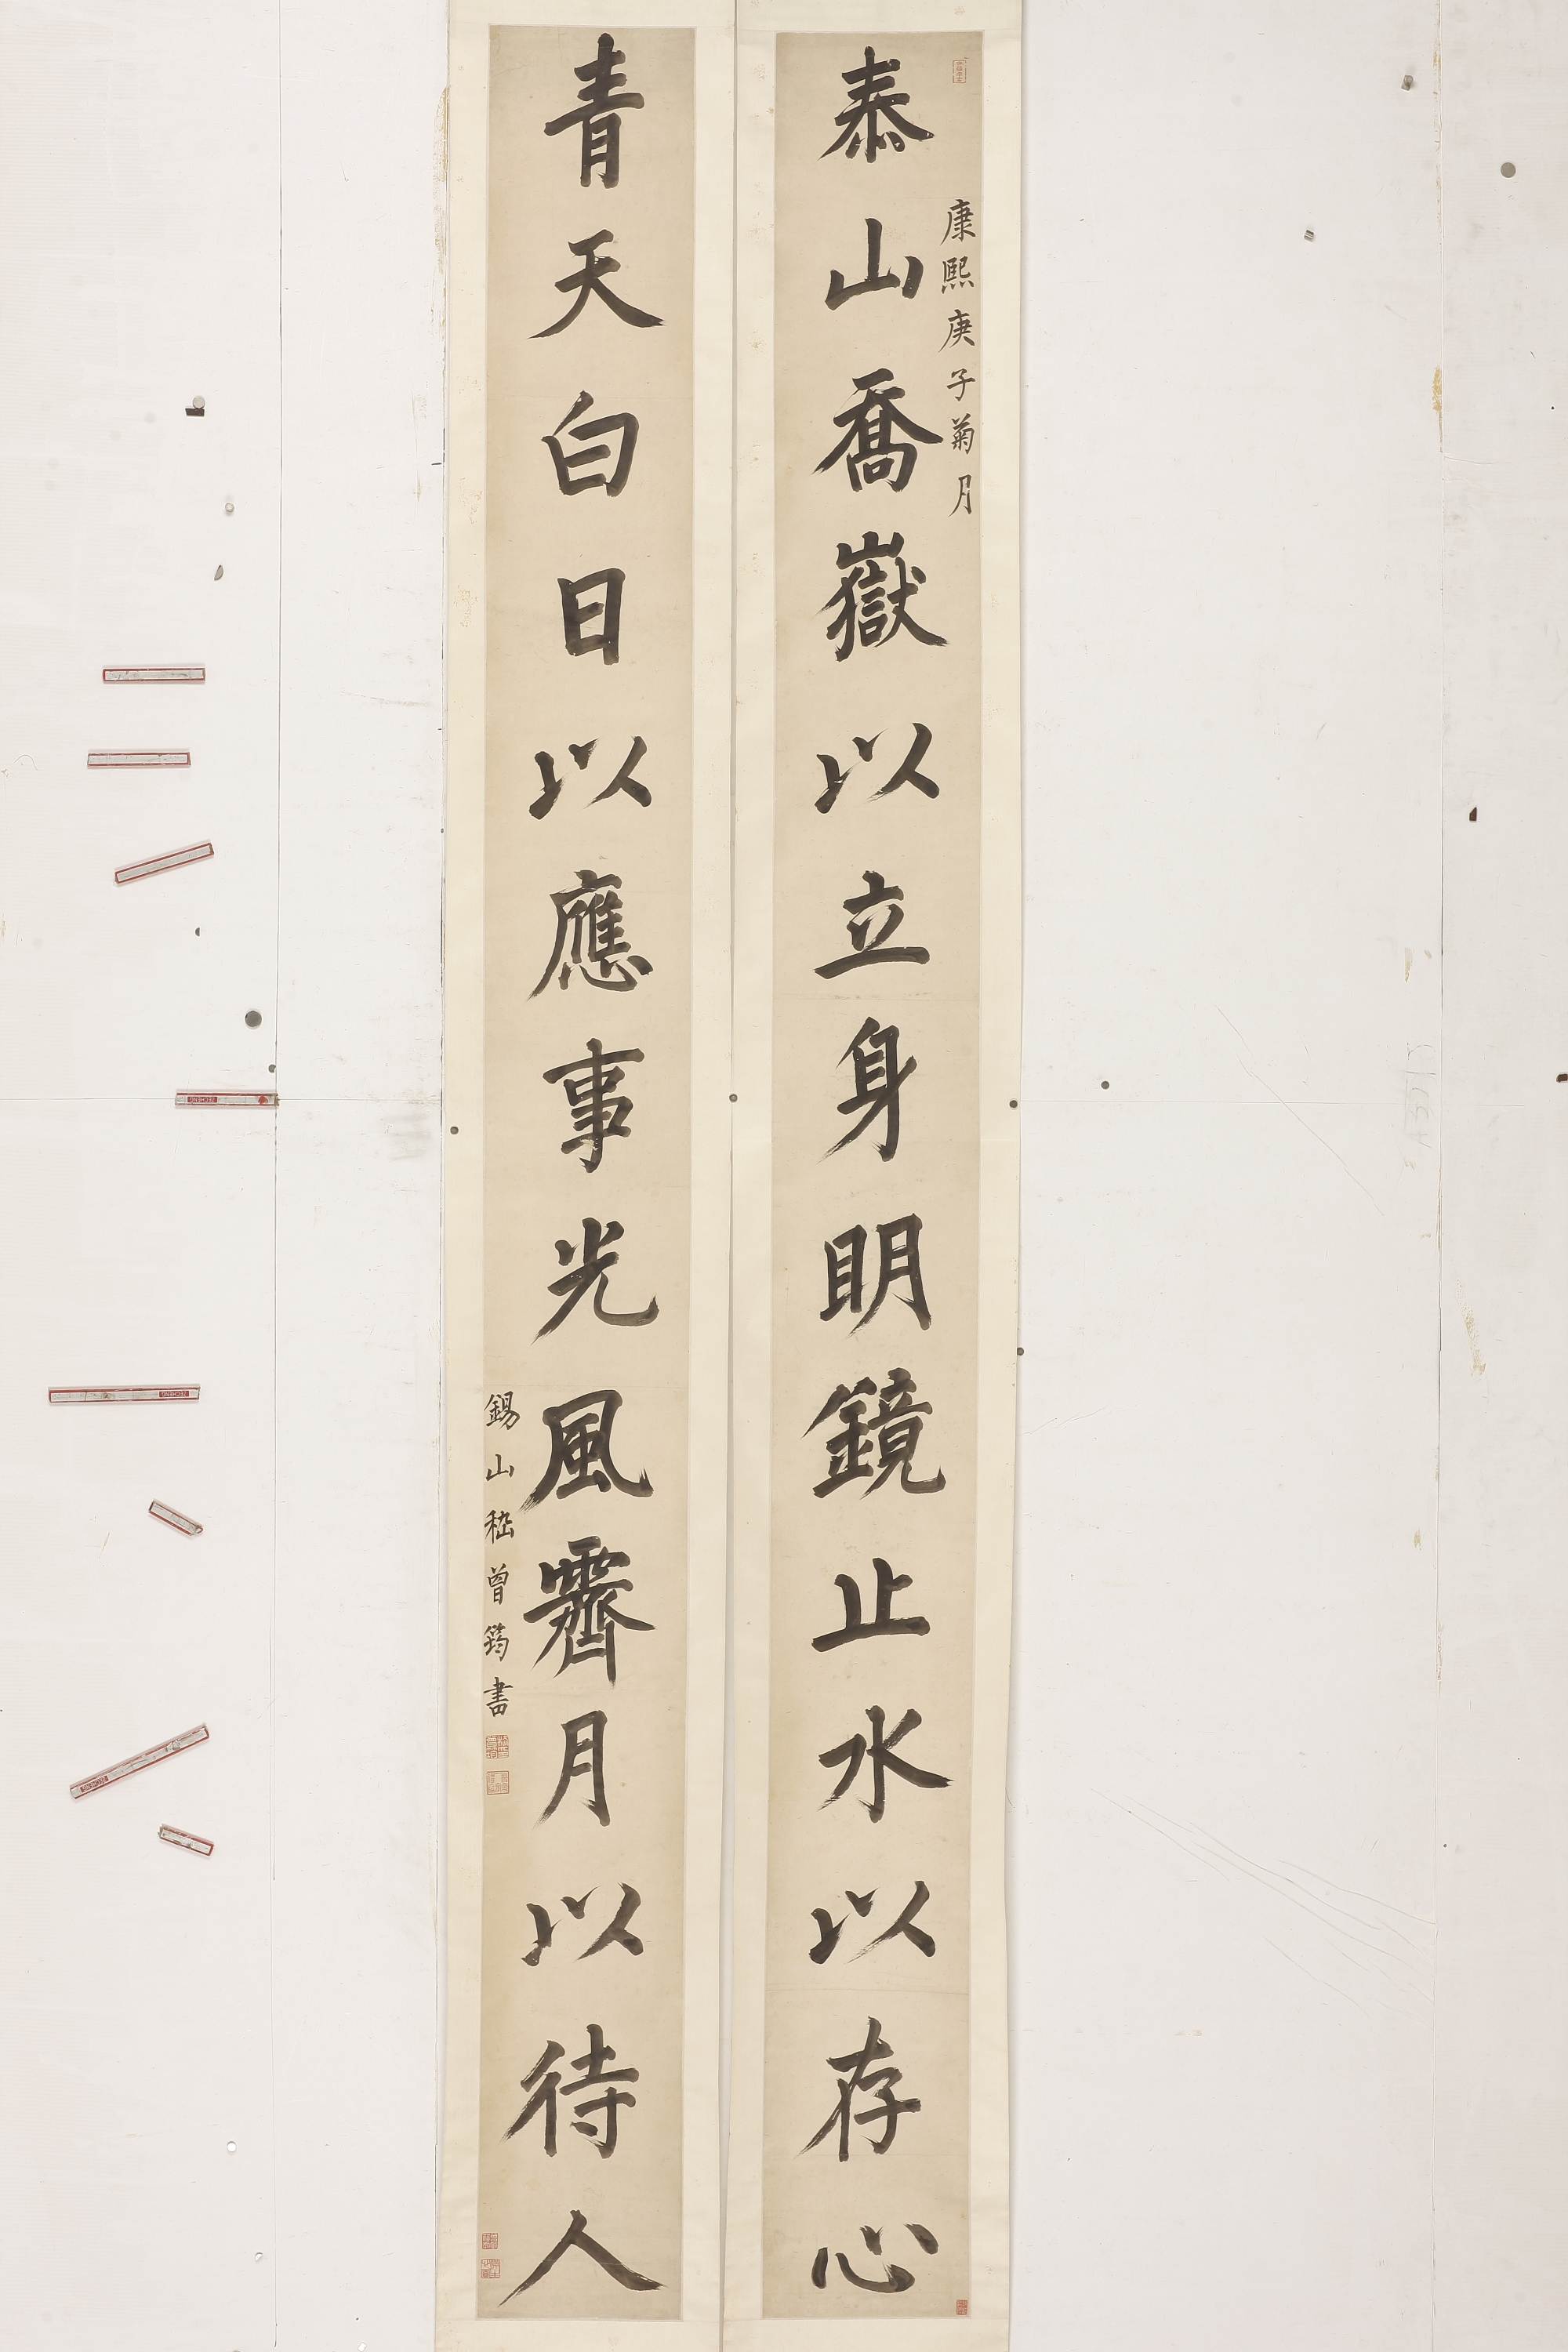 康熙庚子菊月
泰山喬嶽以立身明鏡止水以存心
青天白日以應事光風霽月以待人
錫山嵇曾筠書